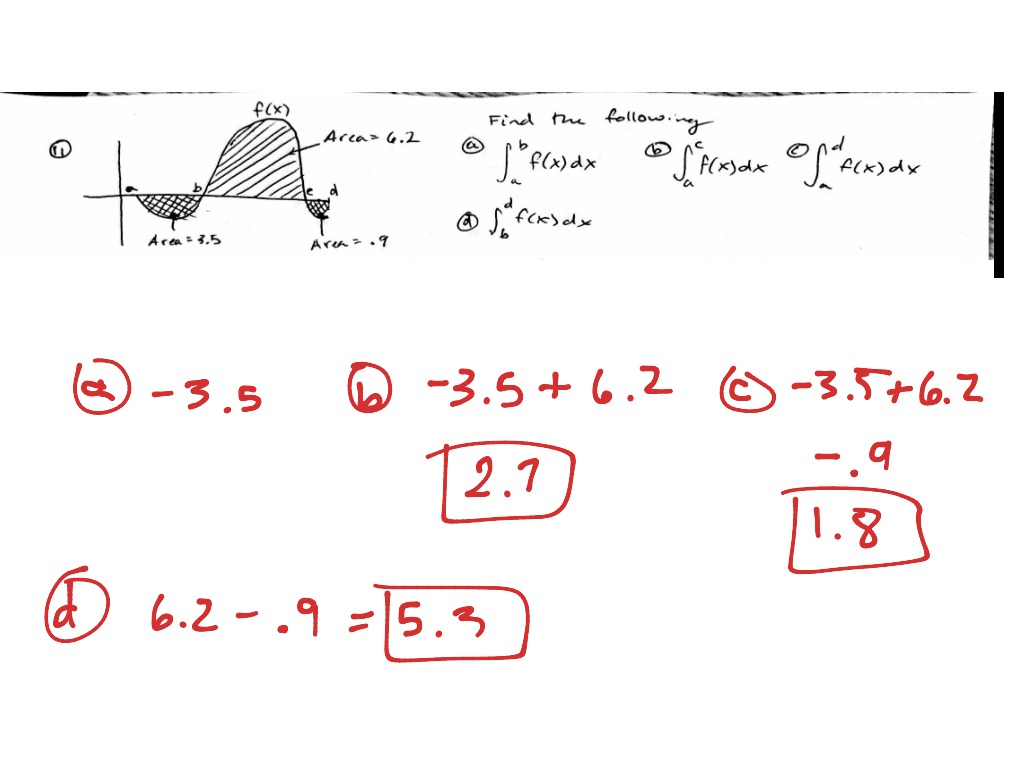 ① f(x) Area = 6.2 Find the following
ⓐ ∫_a^b f(x)dx ⓑ ∫_a^c f(x)dx ⓒ ∫_a^d f(x)dx
a b c d
ⓓ ∫_b^d f(x)dx
Area = 3.5 Area = .9
ⓐ -3.5 ⓑ -3.5 + 6.2 ⓒ -3.5 + 6.2
2.7 - .9
1.8
ⓓ 6.2 - .9 = 5.3